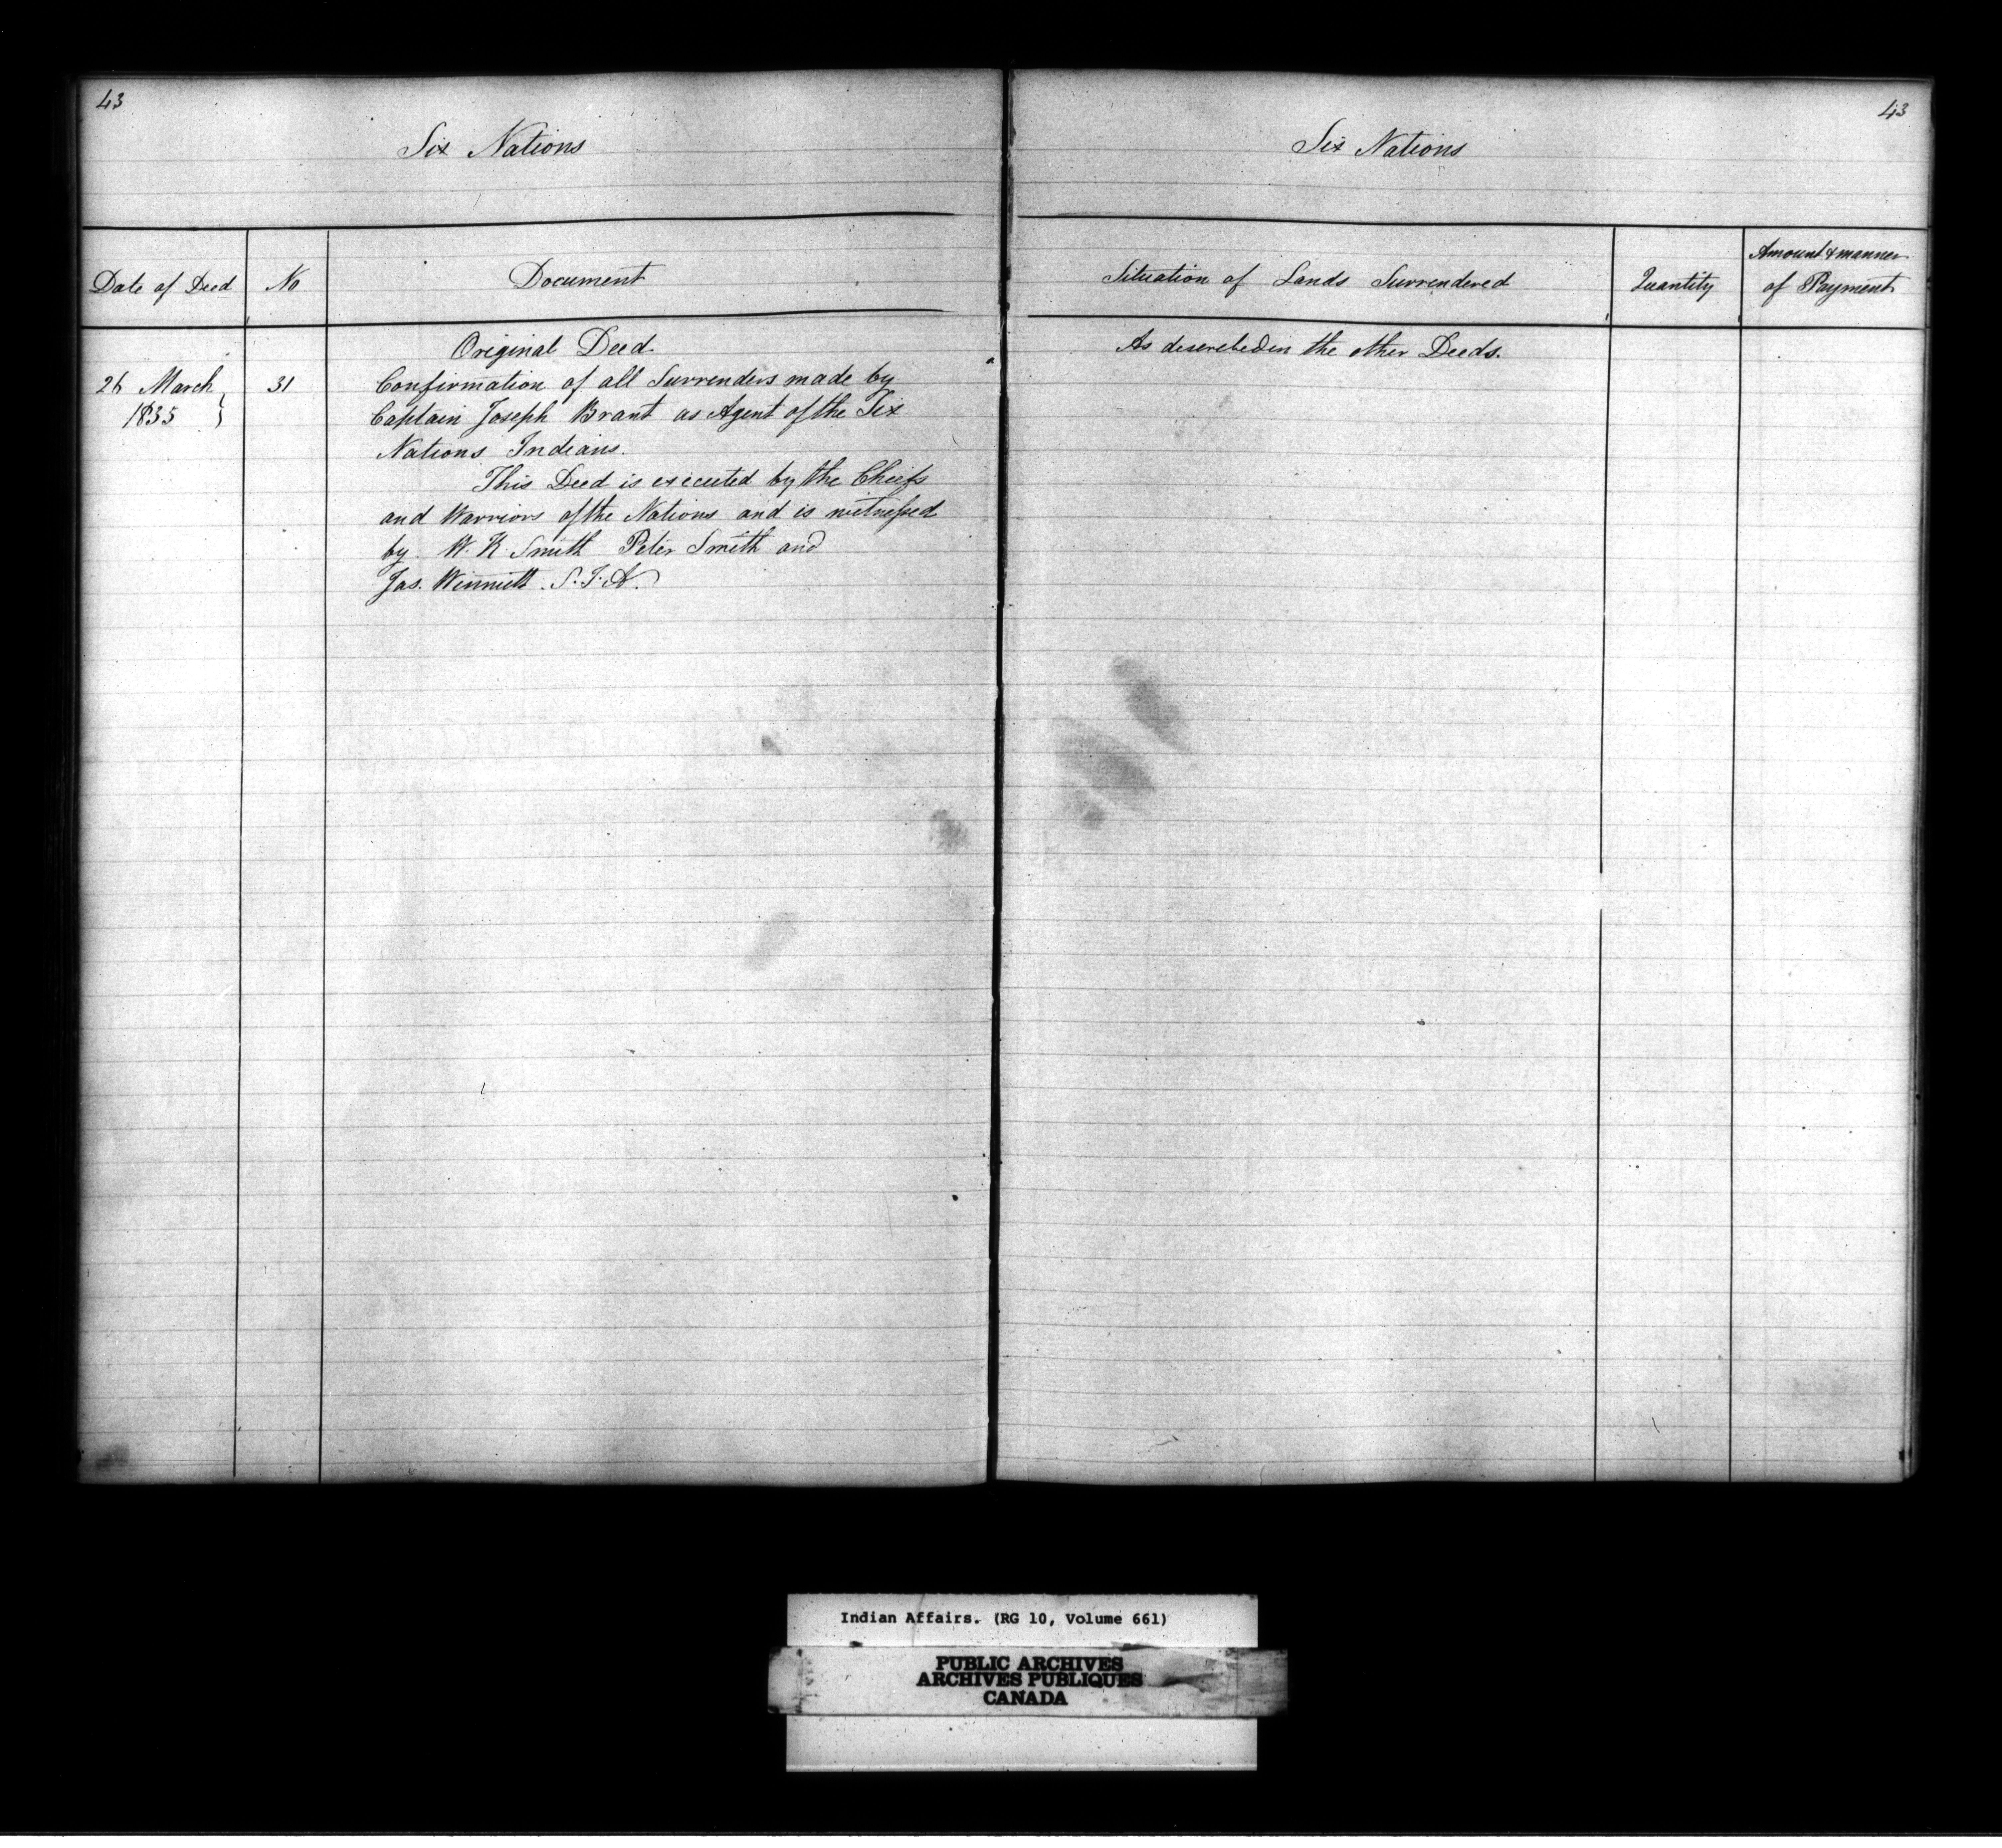 43
Six Nations
Date of Deed
No
Document
Original Deed
26 March
1835
31
Confirmation of all Surrenders made by
Captain Joseph Brant as Agent of the Six
Nations Indians.
This Deed is executed by the Chiefs
and Warriors of the Nations and is witnessed
by W. K. Smith Peter Smith and
Jas. Winniett. S. I. A.
43
Six Nations
Situation of Lands Surrendered
Quantity
Amount & manner
of Payment
As described in the other Deeds.
Indian Affairs. (RG 10, Volume 661)
PUBLIC ARCHIVES
ARCHIVES PUBLIQUES
CANADA